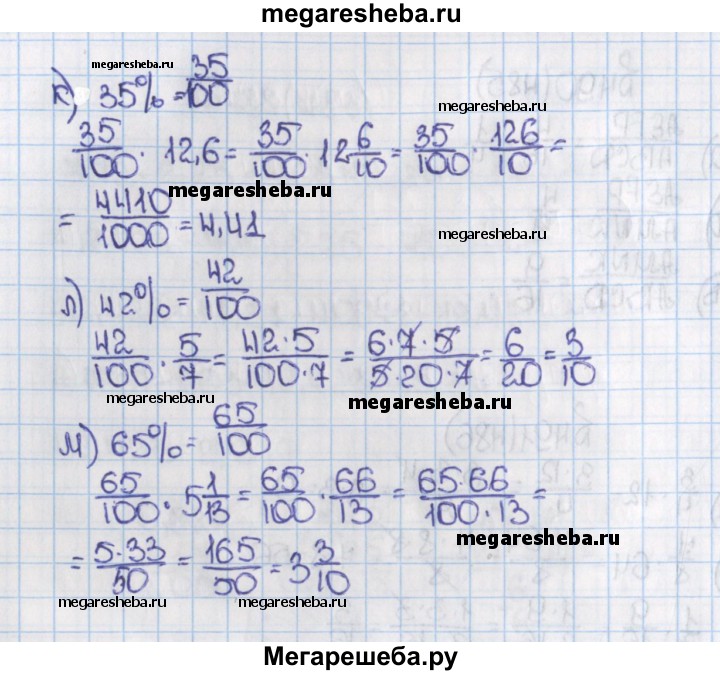 megaresheba.ru
megaresheba.ru
к) 35% = 35/100
megaresheba.ru
35/100 · 12,6 = 35/100 · 12 6/10 = 35/100 · 126/10 =
megaresheba.ru
= 4410/1000 = 4,41
megaresheba.ru
л) 42% = 42/100
42/100 · 5/7 = 42·5/100·7 = 6·7·5/5·20·7 = 6/20 = 3/10
megaresheba.ru
megaresheba.ru
м) 65% = 65/100
65/100 · 5 1/13 = 65/100 · 66/13 = 65·66/100·13 =
megaresheba.ru
= 5·33/50 = 165/50 = 3 3/10
megaresheba.ru
megaresheba.ru
Мегарешеба.ру